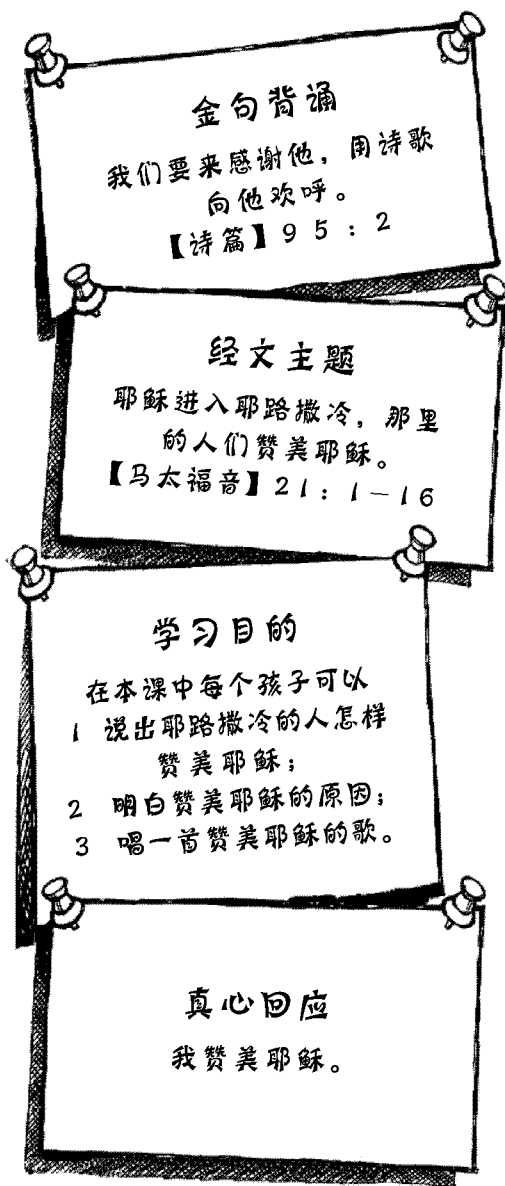 金句背诵
我们要来感谢他，用诗歌
向他欢呼。
【诗篇】95：2
经文主题
耶稣进入耶路撒冷，那里
的人们赞美耶稣。
【马太福音】21：1－16
学习目的
在本课中每个孩子可以
1 说出耶路撒冷的人怎样
赞美耶稣；
2 明白赞美耶稣的原因；
3 唱一首赞美耶稣的歌。
真心回应
我赞美耶稣。